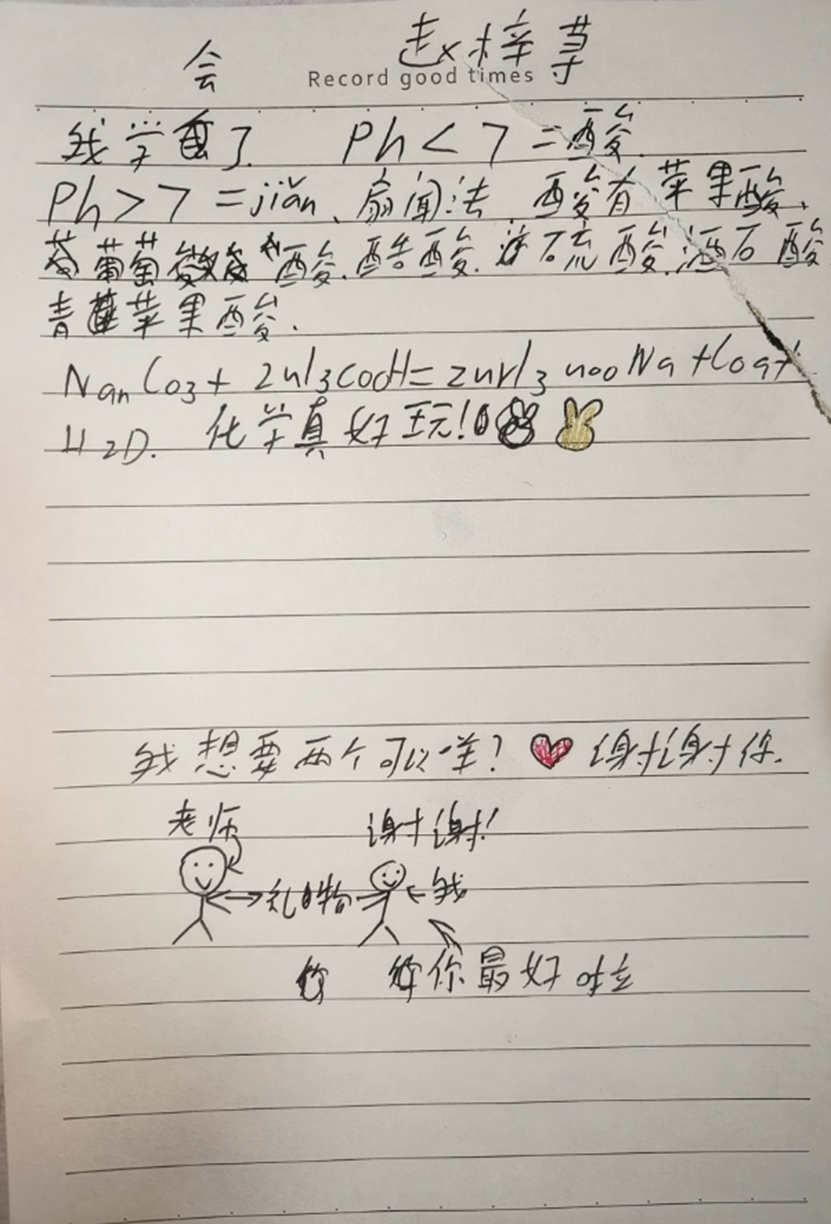 会 赵梓寻
Record good times
我学了 Ph<7=酸.
Ph>7=jiǎn、扇闻法 酸有苹果酸、
葡萄酸.醋酸.硫酸.酒石酸
青苹果酸.
NanCo3+ 2ul3CooH=
H2O. 化学真好玩!
我想要两个可以咩? 谢谢你.
老师 谢谢!
礼物 我
你最好啦